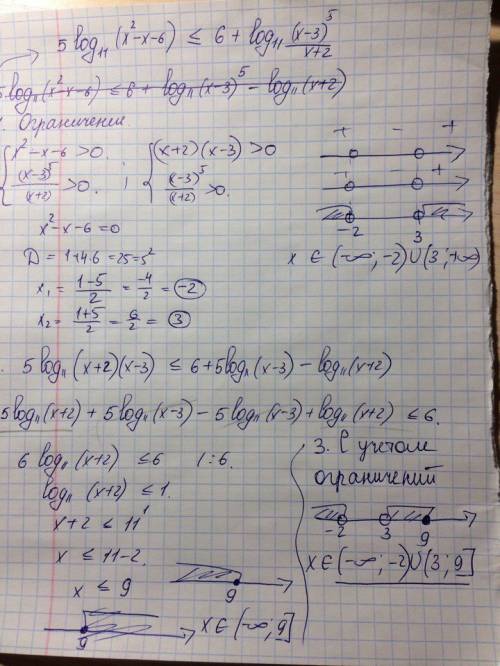 5 log₁₁ (x²-x-6) ≤ 6 + log₁₁ (x-3)⁵/(x+2)
5 log₁₁ (x²-x-6) ≤ 6 + log₁₁ (x-3)⁵ - log₁₁ (x+2)
1. Ограничения
{ x²-x-6 > 0. ; { (x+2)(x-3) > 0
(x-3)⁵/(x+2) > 0. (x-3)⁵/(x+2) > 0.
+ - +
+ - +
-2 3
x²-x-6=0
D = 1+4·6 = 25 = 5²
x ∈ (-∞; -2) ∪ (3; +∞)
x₁ = (1-5)/2 = -4/2 = -2
x₂ = (1+5)/2 = 6/2 = 3
5 log₁₁ (x+2)(x-3) ≤ 6 + 5 log₁₁ (x-3) - log₁₁ (x+2)
5 log₁₁ (x+2) + 5 log₁₁ (x-3) - 5 log₁₁ (x-3) + log₁₁ (x+2) ≤ 6.
6 log₁₁ (x+2) ≤ 6 /:6.
log₁₁ (x+2) ≤ 1.
x+2 ≤ 11¹
x ≤ 11-2.
x ≤ 9
9
9
x ∈ (-∞; 9]
3. С учетом
ограничений
-2 3 9
x ∈ (-∞; -2) ∪ (3; 9]